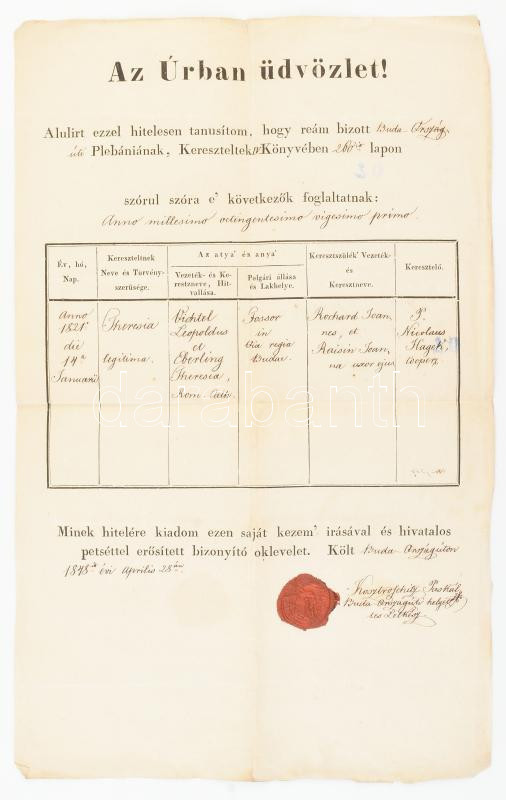 Az Úrban üdvözlet!
Alulirt ezzel hitelesen tanusítom, hogy reám bizott Buda Ország
úti Plebániának, Kereszteltek Könyvében 260ik lapon
szórul szóra e' következők foglaltatnak:
Anno millesimo octingentesimo vigesimo primo.
Év, hó,
Nap.
Kereszteltnek
Neve és Törvény-
szerüsége.
Az atya' és anya'
Vezeték- és Ke-
resztneve, Hit-
vallása.
Polgári állása
és Lakhelye.
Keresztszülék' Vezeték-
és
Keresztneve.
Keresztelő.
Anno
1821
die
14a
Januarii
Theresia
legitima.
Vichtel
Leopoldus
et
Eberling
Theresia,
Rom. Cath.
Fossor
in
Via regia
Budae.
Rochard Joan-
nes, et
Raisin Joan-
na uxor ejus
P.
Nicolaus
Hagek
Cooper.
darabanth
Minek hitelére kiadom ezen saját kezem' irásával és hivatalos
petséttel erősített bizonyító oklevelet. Költ Buda Országúton
1848ik évi Aprilis 28án
Paskál
Buda országúti helyet
tes Lelkész